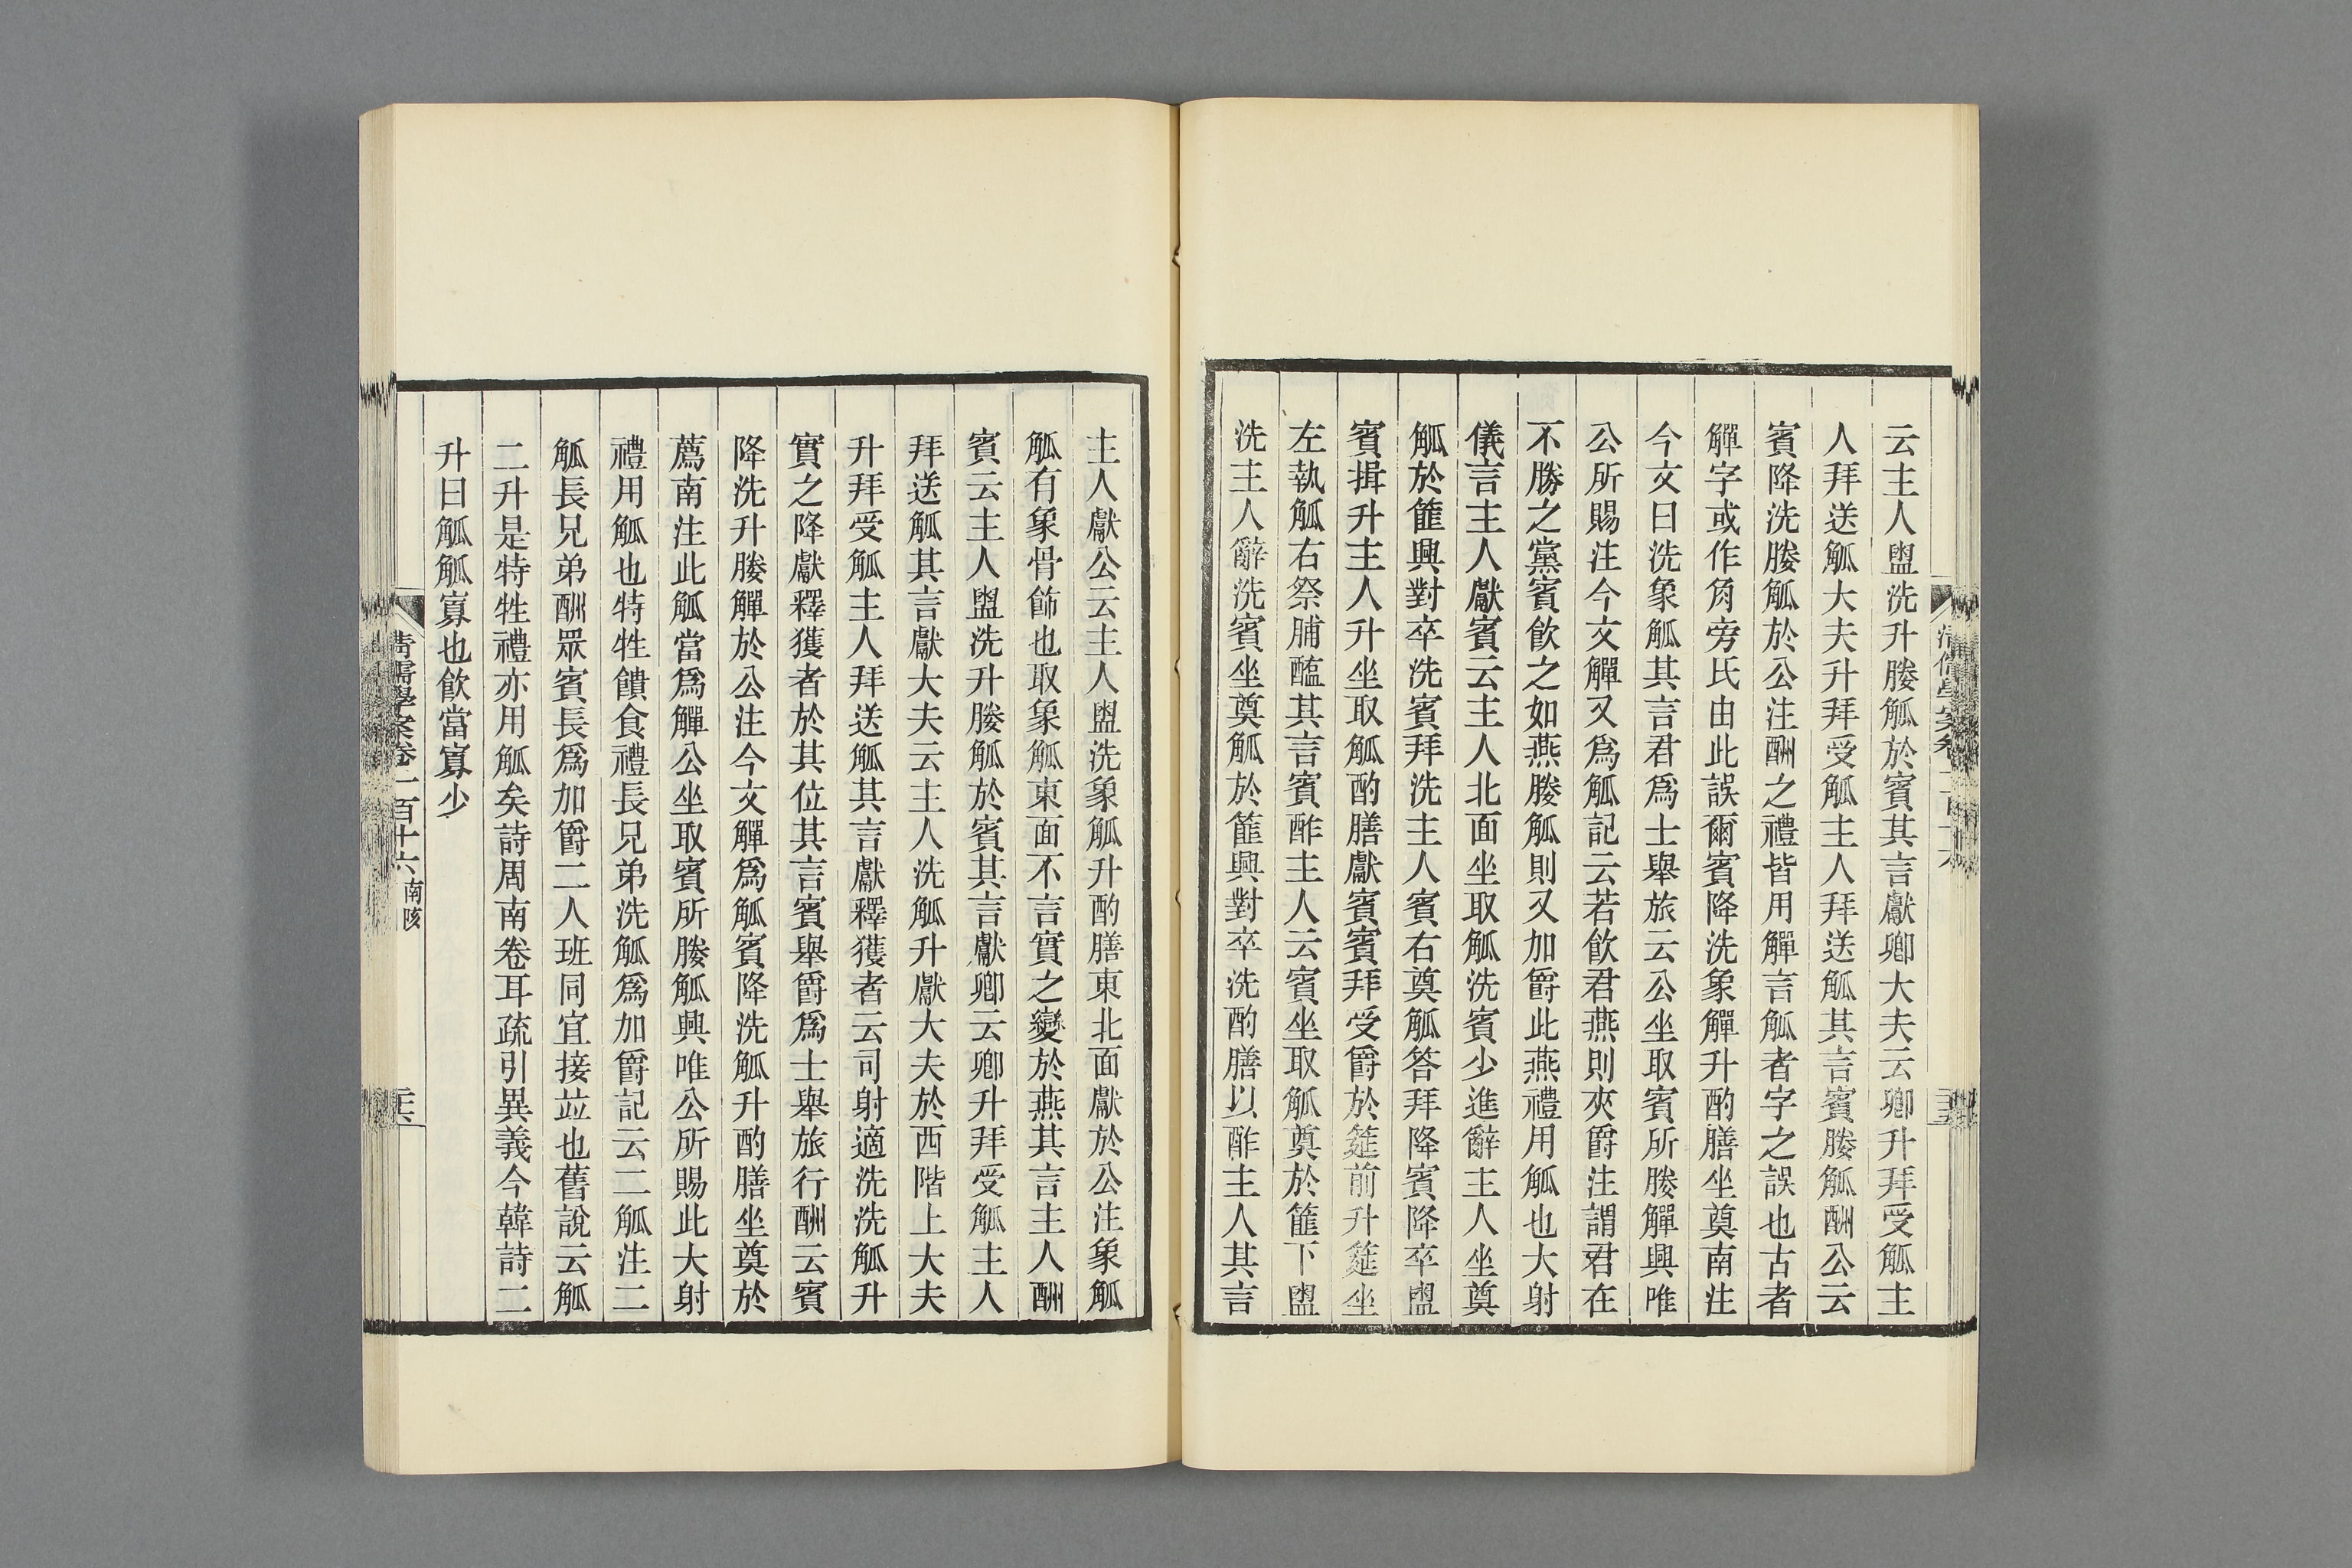 云主人盥洗升媵觚於賓其言獻卿大夫云卿升拜受觚主
人拜送觚大夫升拜受觚主人拜送觚其言賓媵觚酬公云
賓降洗媵觚於公注酬之禮皆用觶言觚者字之誤也古者
觶字或作角旁氏由此誤爾賓降洗象觶升酌膳坐奠南注
今文曰洗象觚其言君爲士舉旅云公坐取賓所媵觶興唯
公所賜注今文觶又爲觚記云若飮君燕則夾爵注謂君在
不勝之黨賓飮之如燕媵觚則又加爵此燕禮用觚也大射
儀言主人獻賓云主人北面坐取觚洗賓少進辭主人坐奠
觚於篚興對卒洗賓拜洗主人賓右奠觚答拜降賓降卒盥
賓揖升主人升坐取觚酌膳獻賓賓拜受爵於筵前升筵坐
左執觚右祭脯醢其言賓酢主人云賓坐取觚奠於篚下盥
洗主人辭洗賓坐奠觚於篚興對卒洗酌膳以酢主人其言
主人獻公云主人盥洗象觚升酌膳東北面獻於公注象觚
觚有象骨飾也取象觚東面不言實之變於燕其言主人酬
賓云主人盥洗升媵觚於賓其言獻卿云卿升拜受觚主人
拜送觚其言獻大夫云主人洗觚升獻大夫於西階上大夫
升拜受觚主人拜送觚其言獻釋獲者云司射適洗洗觚升
實之降獻釋獲者於其位其言賓舉爵爲士舉旅行酬云賓
降洗升媵觶於公注今文觶爲觚賓降洗觚升酌膳坐奠於
薦南注此觚當爲觶公坐取賓所媵觚興唯公所賜此大射
禮用觚也特牲饋食禮長兄弟洗觚爲加爵記云二觚注二
觚長兄弟酬眾賓長爲加爵二人班同宜接竝也舊說云觚
二升是特牲禮亦用觚矣詩周南卷耳疏引異義今韓詩二
升曰觚觚寡也飮當寡少
清儒學案卷二百十六 南陔